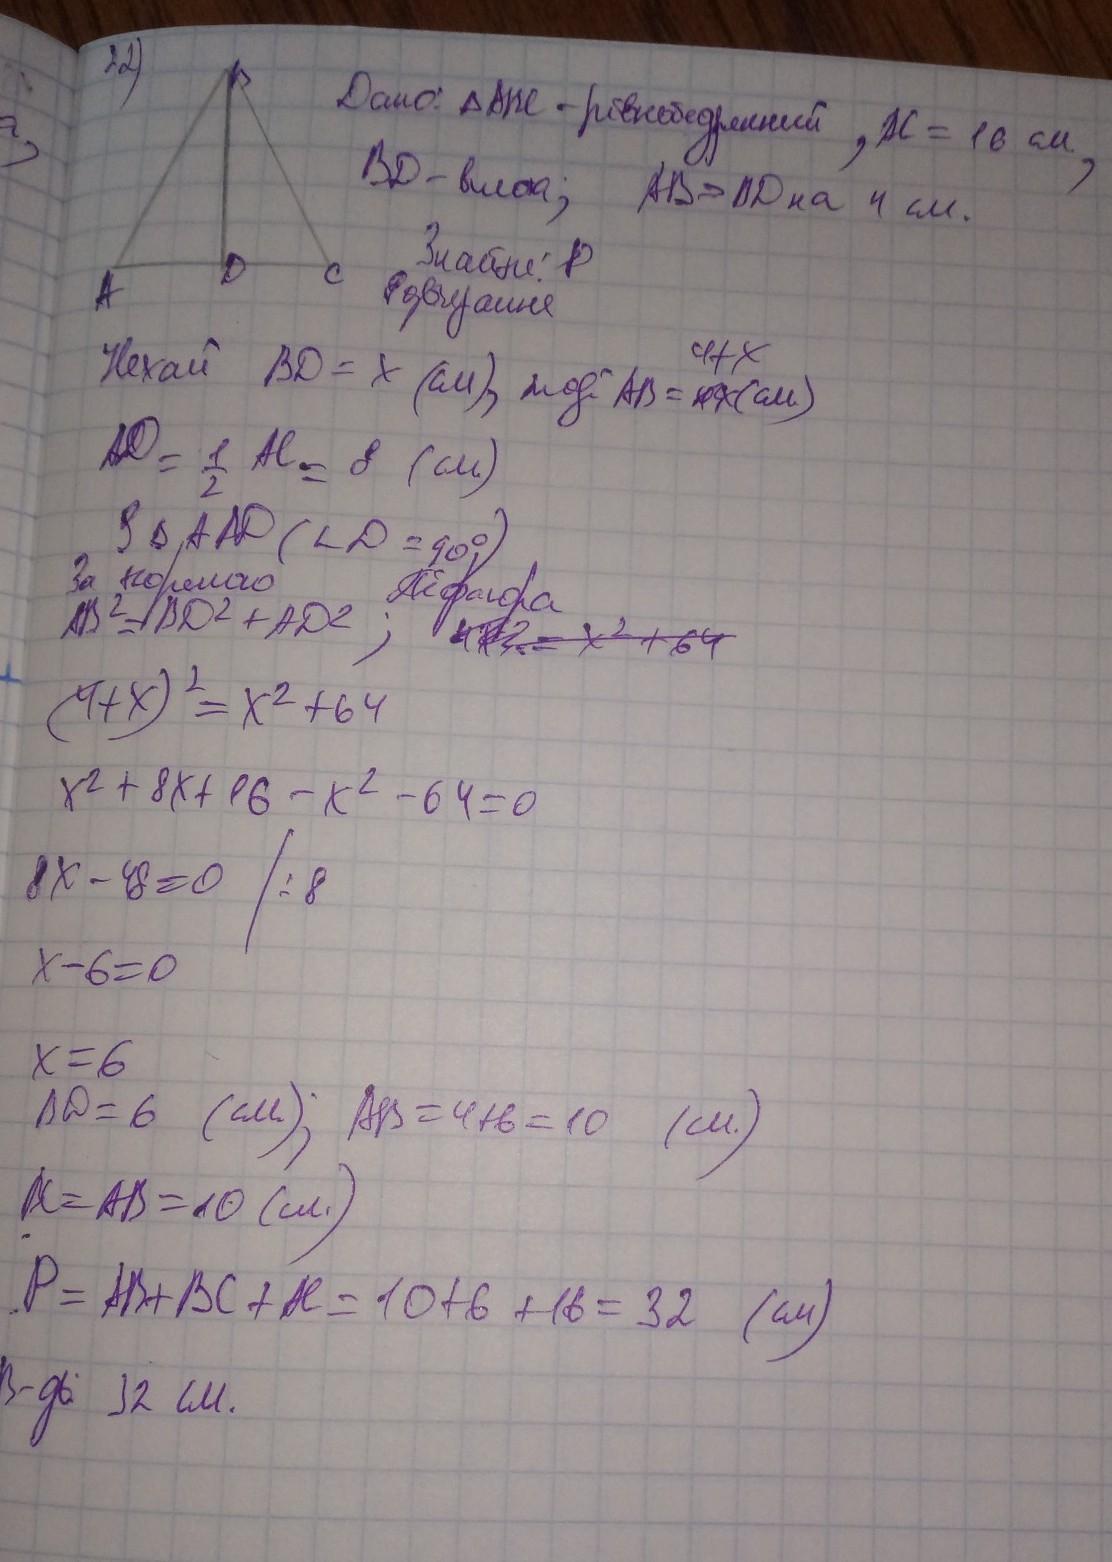 22)
B
Дано: △ABC - рівнобедрений, AC = 16 см,
BD - висота; AB > BD на 4 см.
A D C
Знайти: P
Розв'язання
4+x
Нехай BD = x (см), тоді AB = (см)
AD = 1/2 AC = 8 (см)
З △ ABD (∠D = 90°)
За теоремою Піфагора
AB² = BD² + AD²; 4x² = x² + 64
(4+x)² = x² + 64
x² + 8x + 16 - x² - 64 = 0
8x - 48 = 0 / : 8
x - 6 = 0
x = 6
BD = 6 (см); AB = 4+6 = 10 (см)
BC = AB = 10 (см)
P = AB + BC + AC = 10+6 +16 = 32 (см)
В-дь 32 см.